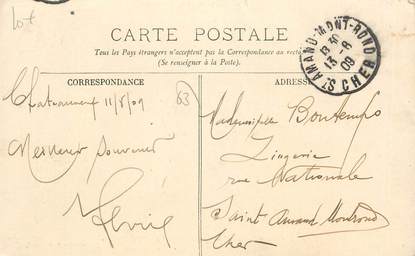 lot
CARTE POSTALE
Tous les Pays étrangers n'acceptent pas la Correspondance au recto
(Se renseigner à la Poste).
CORRESPONDANCE
11/8/09
63
Meilleur Souvenir
ADRESSE
Mademoiselle Bontemps
Lingerie
rue Nationale
Saint Amand Montrond
Cher
ST AMAND-MONT-ROND
13-8
09
CHER